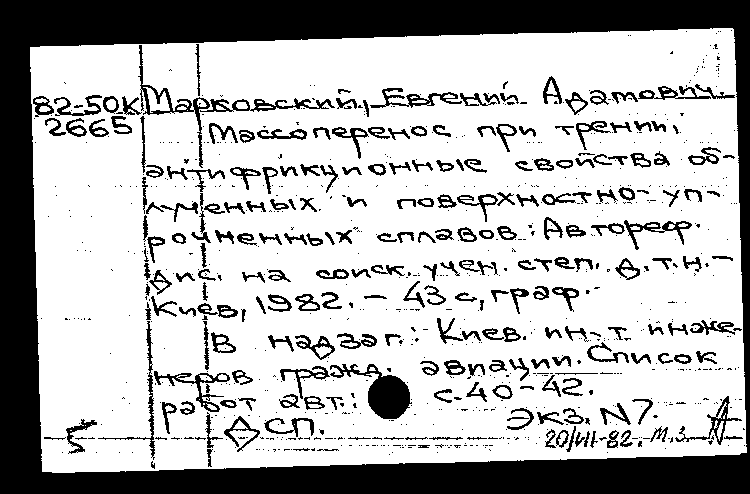 82-50к Марковский, Евгений Адамович.
2665 Массоперенос при трении,
антифрикционные свойства об-
лученных и поверхностно-уп-
рочненных сплавов: Автореф.
дис. на соиск. учен. степ. д.т.н.-
Киев, 1982. - 43 с, граф.
В надзаг.: Киев. ин-т инже-
неров гражд. авиации. Список
работ авт.: с.40-42.
ДСП. Экз. N7.
20/VII-82. М.З.